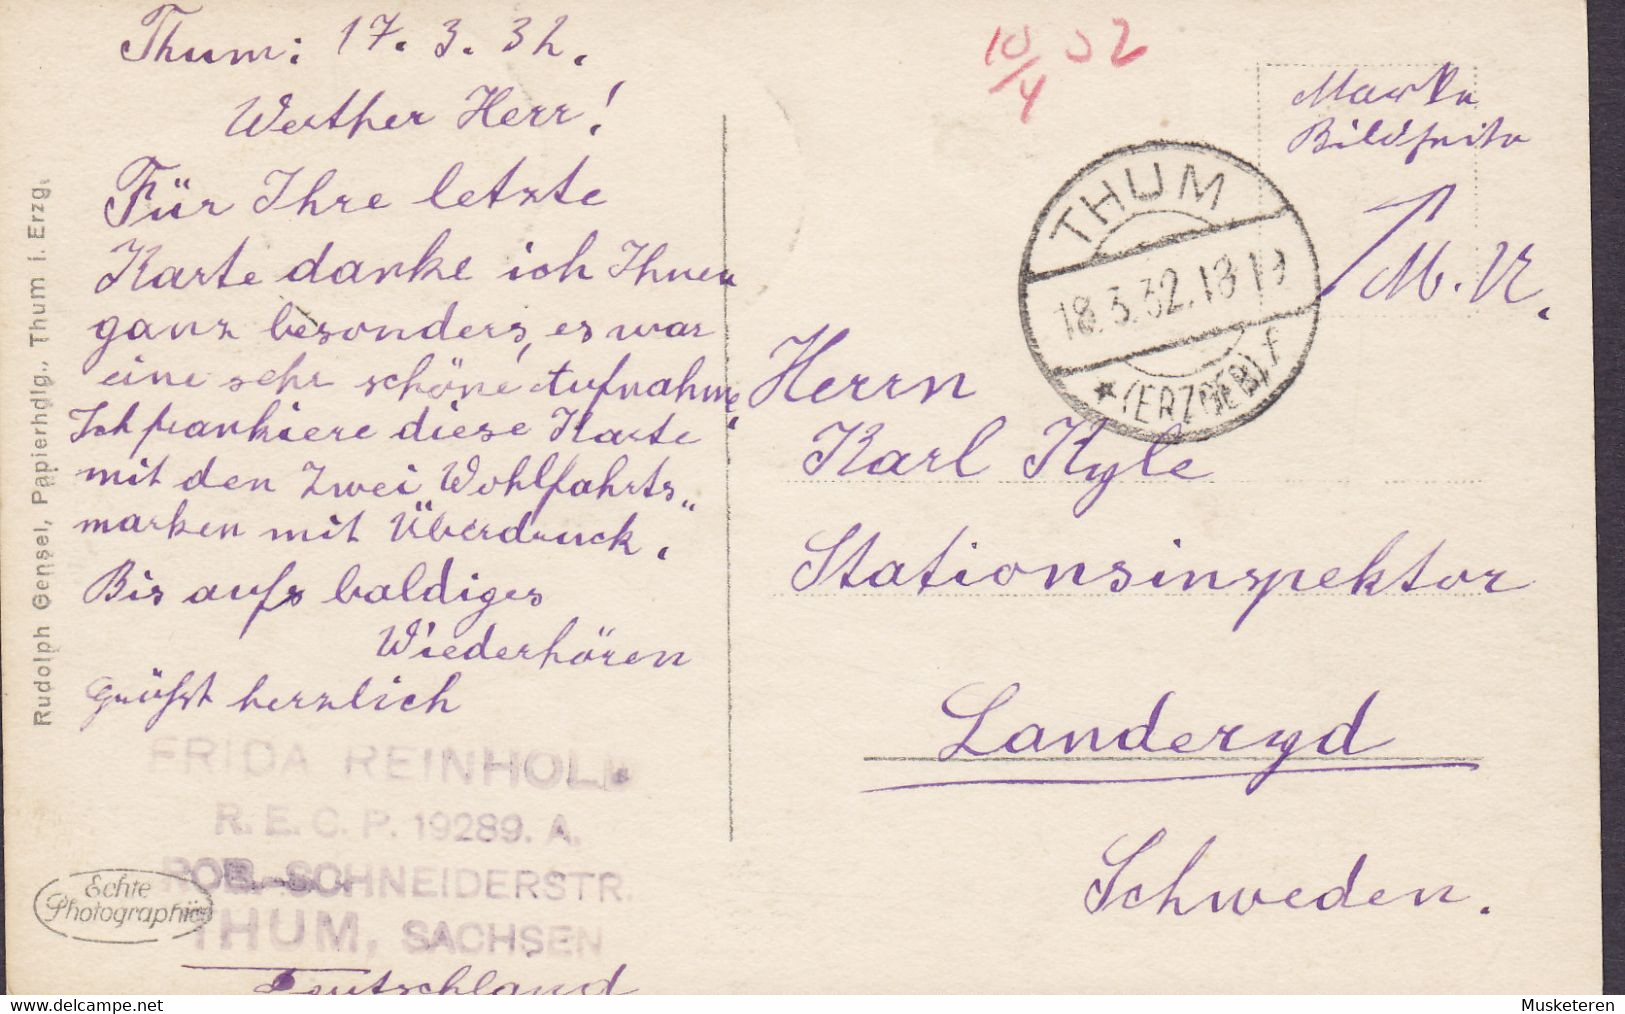 Thum: 17. 3. 32.
Werther Herr!
Für Ihre letzte
Karte danke ich Ihnen
ganz besonders, es war
eine sehr schöne Aufnahme.
Ich frankiere diese Karte
mit den zwei Wohlfahrts
marken mit "Überdruck".
Bis aufs baldiges
Wiederhören
grüßt herzlich
FRIDA REINHOLD
R. E. C. P. 19289. A.
ROB.-SCHNEIDERSTR.
THUM, SACHSEN
Deutschland
Echte
Photographie
Rudolph Gensel, Papierhdlg., Thum i. Erzg.
10/4 32
Marke
Bildseite
M.
THUM
18.3.32.18-19
* (ERZGEB). f
Herrn
Karl Kyle
Stationsinspektor
Landeryd
Schweden.
delcampe.net
Musketeren